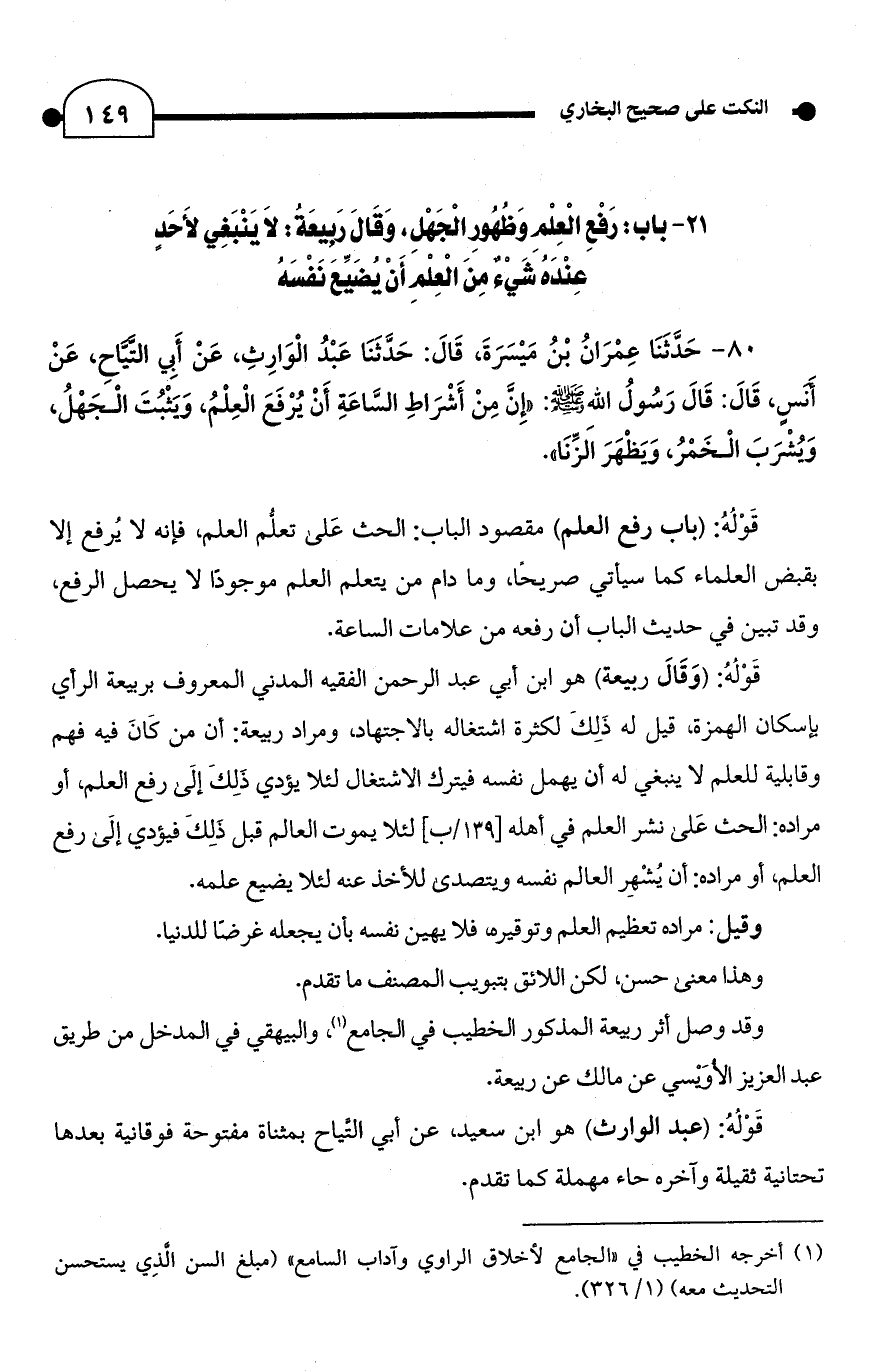 النكت على صحيح البخاري
١٤٩
٢١- باب: رَفْعِ الْعِلْمِ وَظُهُورِ الْجَهْلِ، وَقَالَ رَبِيعَةُ: لاَ يَنْبَغِي لأَحَدٍ
عِنْدَهُ شَيْءٌ مِنَ الْعِلْمِ أَنْ يُضَيِّعَ نَفْسَهُ
٨٠- حَدَّثَنَا عِمْرَانُ بْنُ مَيْسَرَةَ، قَالَ: حَدَّثَنَا عَبْدُ الْوَارِثِ، عَنْ أَبِي التَّيَّاحِ، عَنْ
أَنَسٍ، قَالَ: قَالَ رَسُولُ اللهِ ﷺ: «إِنَّ مِنْ أَشْرَاطِ السَّاعَةِ أَنْ يُرْفَعَ الْعِلْمُ، وَيَثْبُتَ الْـجَهْلُ،
وَيُشْرَبَ الْـخَمْرُ، وَيَظْهَرَ الزِّنَا».
قَوْلُهُ: (باب رفع العلم) مقصود الباب: الحث عَلىٰ تعلُّم العلم، فإنه لا يُرفع إلا
بقبض العلماء كما سيأتي صريحًا، وما دام من يتعلم العلم موجودًا لا يحصل الرفع،
وقد تبين في حديث الباب أن رفعه من علامات الساعة.
قَوْلُهُ: (وَقَالَ ربيعة) هو ابن أبي عبد الرحمن الفقيه المدني المعروف بربيعة الرأي
بإسكان الهمزة، قيل له ذَلِكَ لكثرة اشتغاله بالاجتهاد، ومراد ربيعة: أن من كَانَ فيه فهم
وقابلية للعلم لا ينبغي له أن يهمل نفسه فيترك الاشتغال لئلا يؤدي ذَلِكَ إلَىٰ رفع العلم، أو
مراده: الحث عَلىٰ نشر العلم في أهله [١٣٩/ب] لئلا يموت العالم قبل ذَلِكَ فيؤدي إلَىٰ رفع
العلم، أو مراده: أن يُشْهِر العالم نفسه ويتصدىٰ للأخذ عنه لئلا يضيع علمه.
وقيل: مراده تعظيم العلم وتوقيره، فلا يهين نفسه بأن يجعله غرضًا للدنيا.
وهذا معنىٰ حسن، لكن اللائق بتبويب المصنف ما تقدم.
وقد وصل أثر ربيعة المذكور الخطيب في الجامع(١)، والبيهقي في المدخل من طريق
عبد العزيز الأُوَيْسي عن مالك عن ربيعة.
قَوْلُهُ: (عبد الوارث) هو ابن سعيد، عن أبي التَّياح بمثناة مفتوحة فوقانية بعدها
تحتانية ثقيلة وآخره حاء مهملة كما تقدم.
(١) أخرجه الخطيب في «الجامع لأخلاق الراوي وآداب السامع» (مبلغ السن الَّذِي يستحسن
التحديث معه) (١/ ٣٢٦).